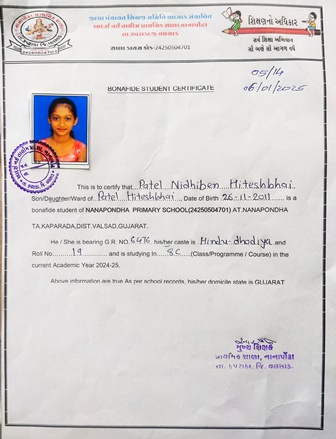 શિક્ષણનો અધિકાર
સર્વ શિક્ષા અભિયાન
સૌ ભણે સૌ આગળ વધે
શાળા ડાયસ કોડ-24250504701
05/14
06/01/2025
BONAFIDE STUDENT CERTIFICATE
This is to certify that Patel Nidhiben Hiteshbhai
Son/Daughter/Ward of Patel Hiteshbhai, Date of Birth 26-11-2011 is a
bonafide student of NANAPONDHA PRIMARY SCHOOL(24250504701) AT.NANAPONDHA
TA.KAPARADA,DIST.VALSAD,GUJARAT.
He / She is bearing G.R. NO. 6476 his/her caste is Hindu-dhodiya and
Roll No. 19 and is studying In 8C (Class/Programme / Course) in the
current Academic Year 2024-25.
Above information are true As per school records, his/her domicile state is GUJARAT
મુખ્ય શિક્ષક
પ્રાથમિક શાળા, નાનાપોંઢા
તા. કપરાડા, જિ. વલસાડ.